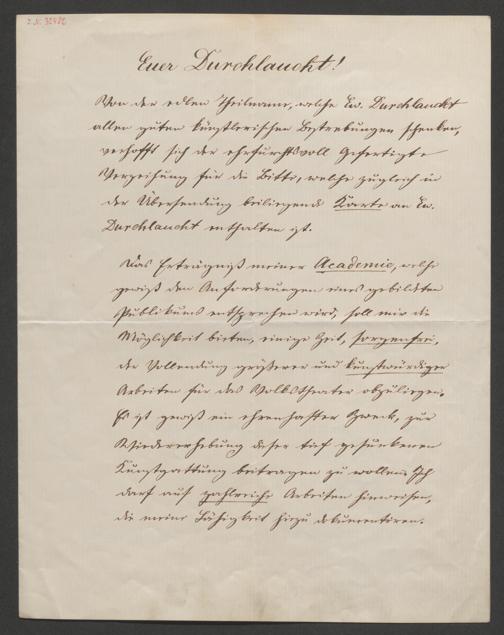 I.N. 32482
Euer Durchlaucht!
Von der edlen Theilname, welche Eu. Durchlaucht
allen guten künstlerischen Bestrebungen schenken,
verhofft sich der ehrfurchtsvoll Gefertigte
Verzeihung für die Bitte, welche zugleich in
der Übersendung beiliegende Karte an Eu.
Durchlaucht enthalten ist.
Das Erträgniß meiner Academie, welche
gewiß den Anforderungen eines gebildeten
Publikums entsprechen wird, soll mir die
Möglichkeit bieten, einige Zeit, sorgenfrei,
der Vollendung größerer und kunstwürdiger
Arbeiten für das Volkstheater obzuliegen.
Es ist gewiß ein ehrenhafter Zweck, zur
Wiedererhebung dieser tief gesunkenen
Kunstgattung beitragen zu wollen. Ich
darf auf zahlreiche Arbeiten hinweisen,
die meine Fähigkeit hiezu dokumentiren.